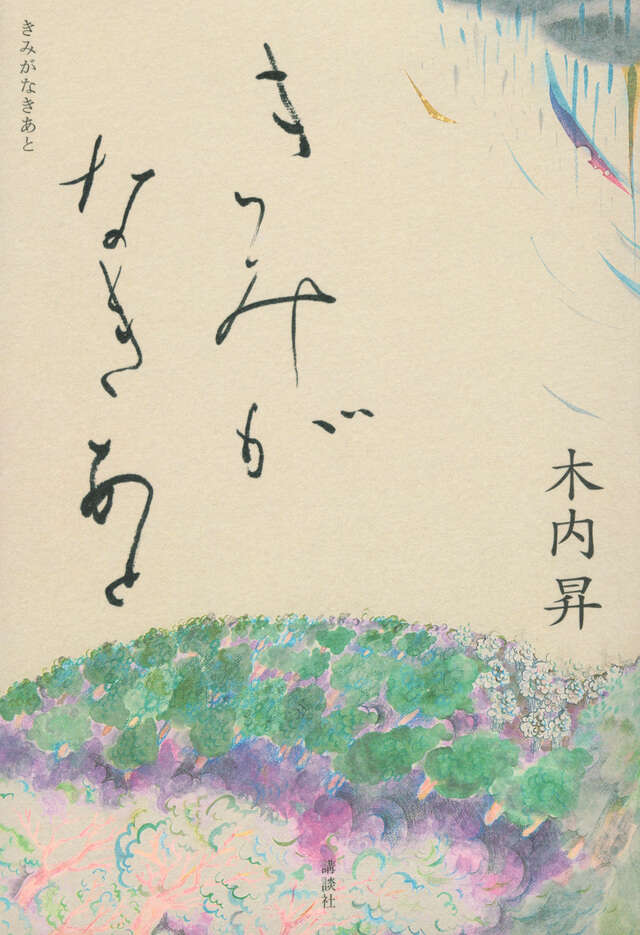 きみが
なきあと
きみがなきあと
木内昇
講談社